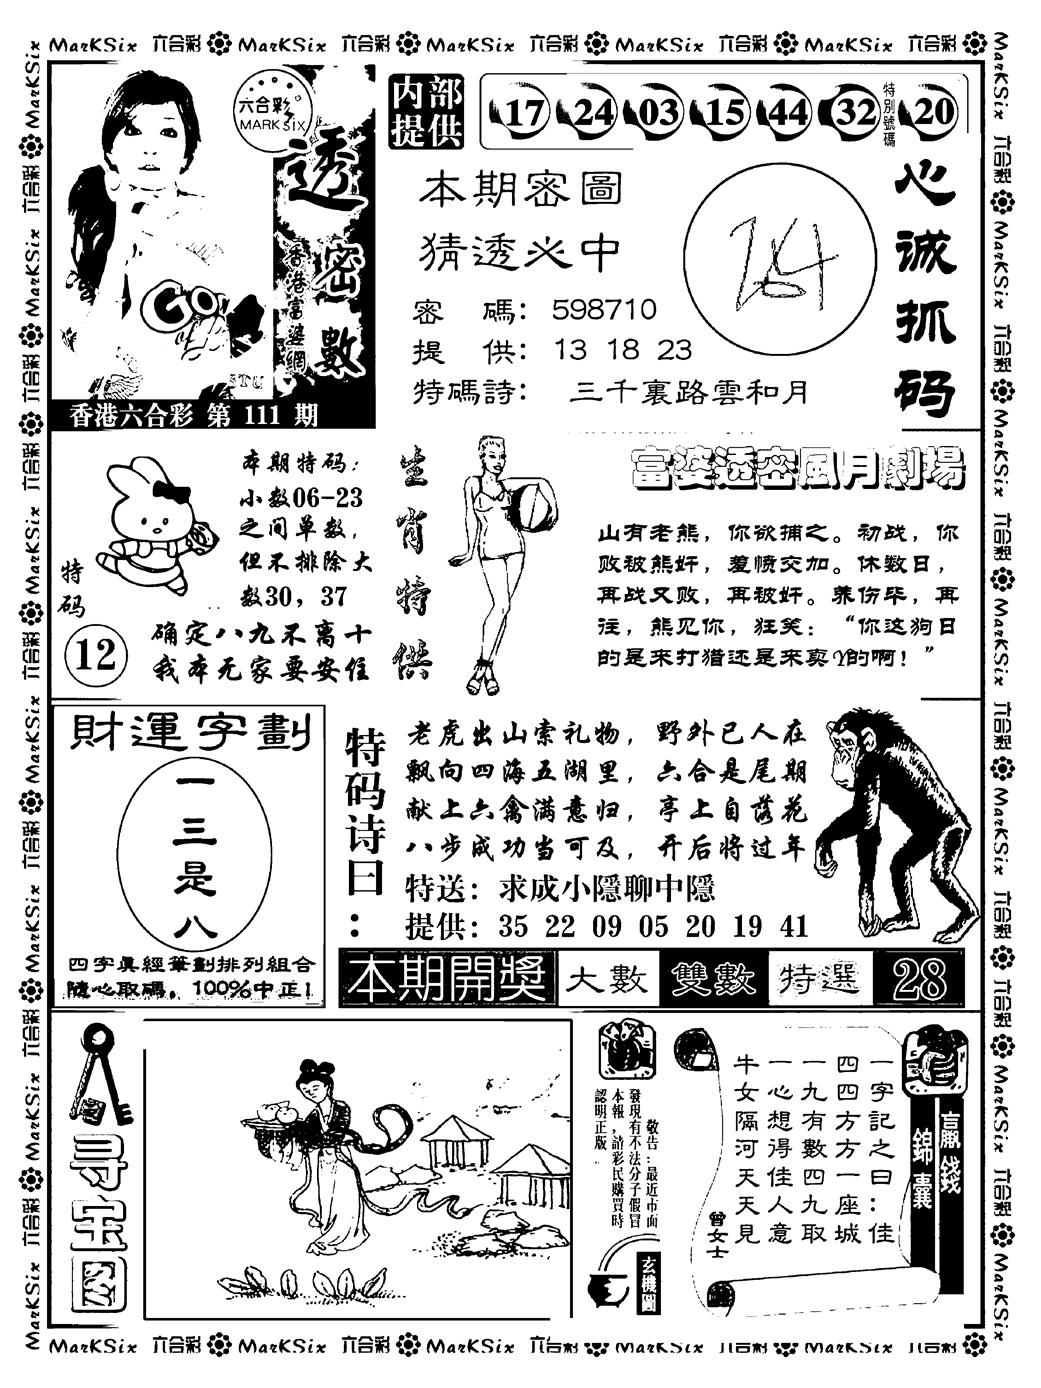 MarKSix 六合彩 MarKSix 六合彩 MarKSix 六合彩 MarKSix 六合彩 MarKSix 六合彩
六合彩
MARK SIX
透密數
香港富婆網
香港六合彩 第 111 期
内部
提供
17 24 03 15 44 32 特别號碼 20
本期密圖
猜透必中
密 碼: 598710
提 供: 13 18 23
特碼詩: 三千裏路雲和月
心诚抓码
特码
12
本期特码:
小数06-23
之间单数,
但不排除大
数30, 37
确定八九不离十
我本无家要安住
生肖特供
富婆透密風月劇場
山有老熊，你欲捕之。初战，你
败被熊奸，羞愤交加。休数日，
再战又败，再被奸。养伤毕，再
往，熊见你，狂笑：“你这狗日
的是来打猎还是来卖Y的啊！”
財運字劃
一
三
是
八
四字眞經筆劃排列組合
隨心取碼，100%中正!
特码诗曰:
老虎出山索礼物，野外已人在
飘向四海五湖里，六合是尾期
献上六禽满意归，亭上自落花
八步成功当可及，开后将过年
特送: 求成小隱聊中隱
提供: 35 22 09 05 20 19 41
本期開獎 大數 雙數 特選 28
寻宝图
敬告:最近市面
發現有不法分子假冒
本報,請彩民購買時
認明正版
玄機圖
贏錢
錦囊
一字記之曰:佳
四四方方一座城
一九有數四九取
一心想得佳人意
牛女隔河天天見
曾女士
MarKSix 六合彩 MarKSix 六合彩 MarKSix 六合彩 MarKSix 六合彩 MarKSix 六合彩